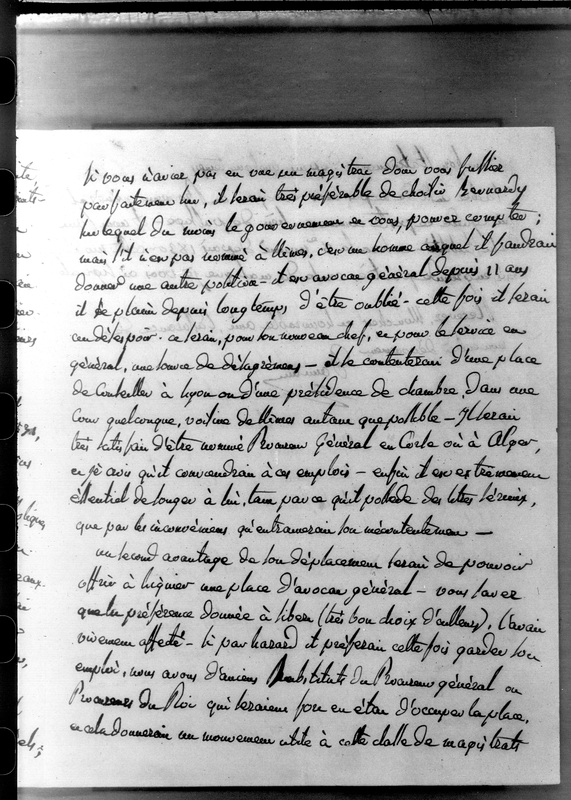 si vous n'aviez pas en vue un magistrat dont vous fussiez
parfaitement sur, il serait très préférable de choisir
sur lequel du moins le gouvernement et vous, pouvez compter;
mais s'il n'est pas nommé à Nîmes, c'est un homme auquel il faudrait
donner une autre position - il est avocat général depuis 11 ans
il se plaint depuis longtemps d'être oublié - cette fois il serait
au désespoir. ce serait, pour son nouveau chef, et pour le service en
général, une source de désagrémens - il se contenterait d'une place
de Conseiller à Lyon ou d'une présidence de chambre, dans une
Cour quelconque, voisine de Nîmes autant que possible - Il serait
très satisfait d'être nommé Procureur Général en Corse où à Alger,
et je crois qu'il conviendrait à ces emplois - enfin il est extrêmement
essentiel de songer à lui, tant parce qu'il possède des titres sérieux,
que par les inconvéniens qu'entrainerait son mécontentement -
un second avantage de son déplacement serait de pouvoir
offrir à une place d'avocat général - vous savez
que la préférence donnée à (très bon choix d'ailleurs), l'avait
vivement affecté - si par hasard il préférait cette fois garder son
emploi, nous avons d'anciens Substituts du Procureur général ou
Procureurs du Roi qui seraient fort en état d'occuper la place,
et cela donnerait un mouvement utile à cette classe de magistrats